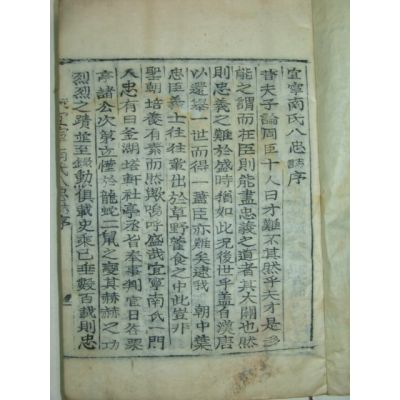 宜寧南氏八忠誌序
昔夫子論周臣十人曰才難不其然乎夫才是多
能之謂而在臣則能盡忠義之道者其大關也然
則忠義之難於盛時猶如此况後世乎盖自漢唐
以還舉一世而得一藎臣亦難矣逮我 朝中葉
忠臣義士往往輩出於草野 食之中此豈非
聖朝培養有素而然歟嗚呼盛哉宜寧南氏一門
八忠有曰 湖培軒社亭 岩奉事判官日 粟
亭諸公次第立慬於龍蛇二鼠之變其赫赫之功
烈烈之蹟並至錄勳俱載史乘已垂數百載則忠
宜寧南氏八忠誌序